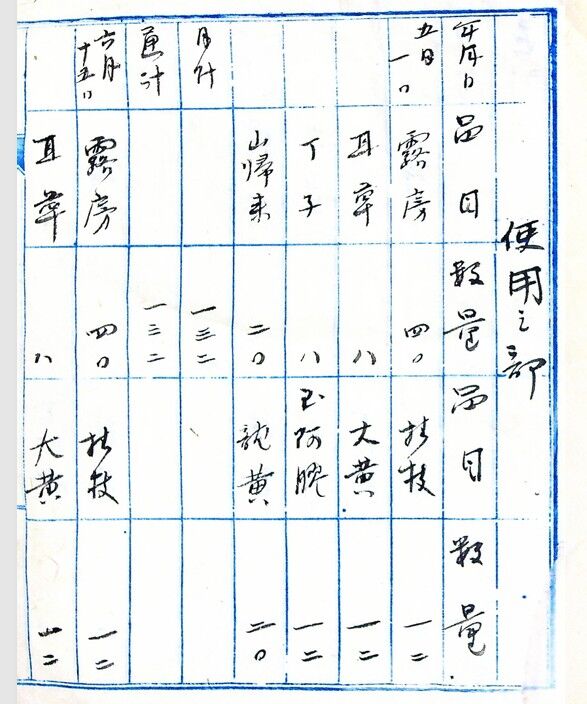 使用之部
年月日 品目 数量 品目 数量
五月一日 露房 四〇 桂枝 一二
耳草 八 大黄 一二
丁子 八 玉阿膠 一二
山帰来 二〇 黄 二〇
月計 一三二
通計 一三二
六月十五日 露房 四〇 桂枝 一二
耳草 八 大黄 一二